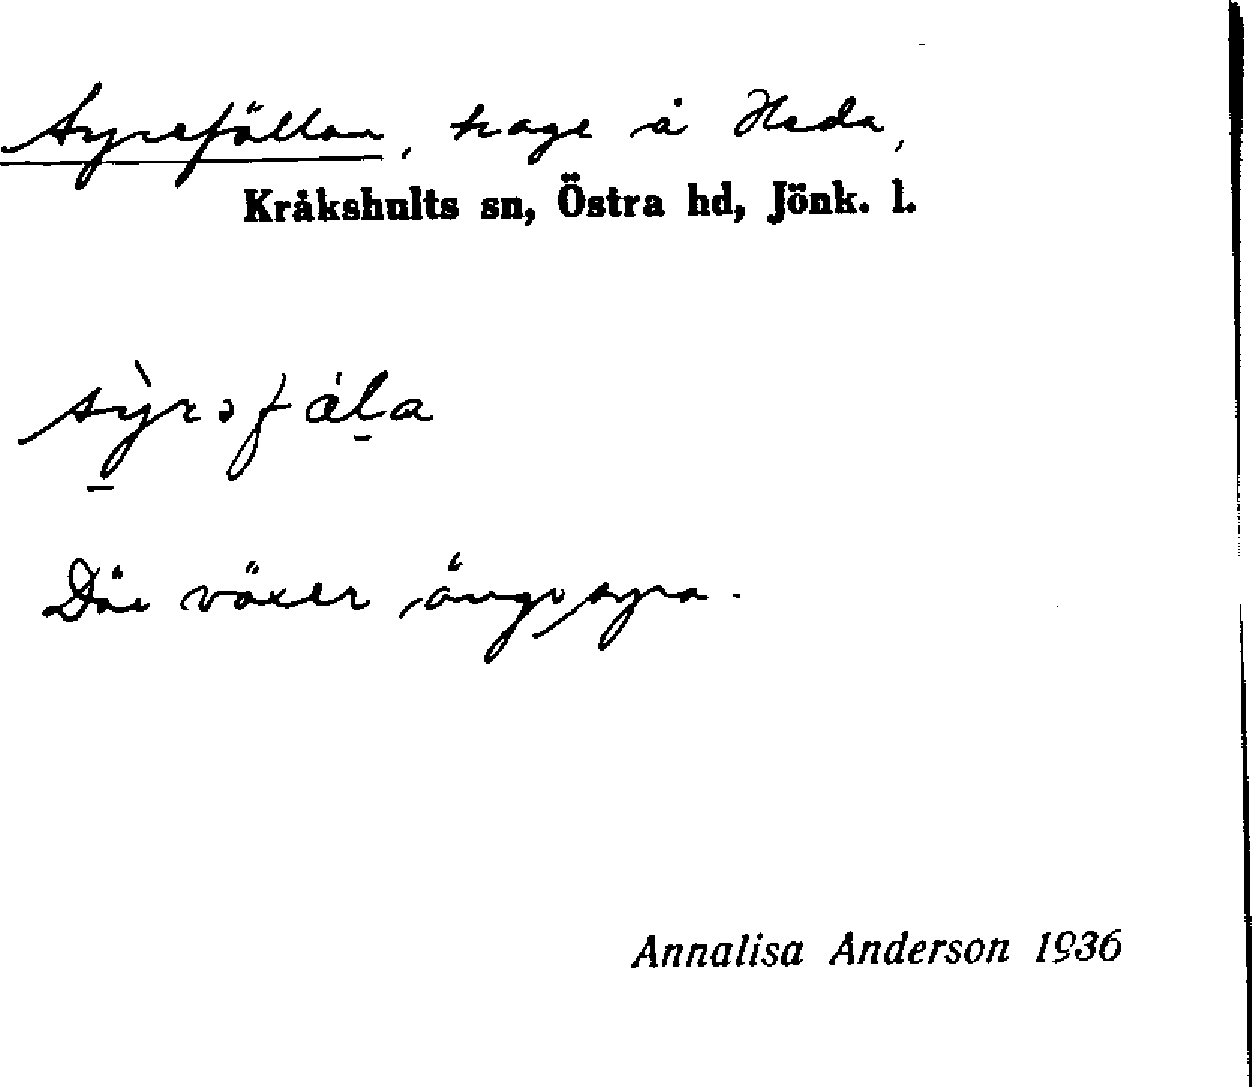 Syrefällan, hage å Heda,
Kråkshults sn, Östra hd, Jönk. l.
sỳrəfála
Där växer ängssyra.
Annalisa Anderson 1936